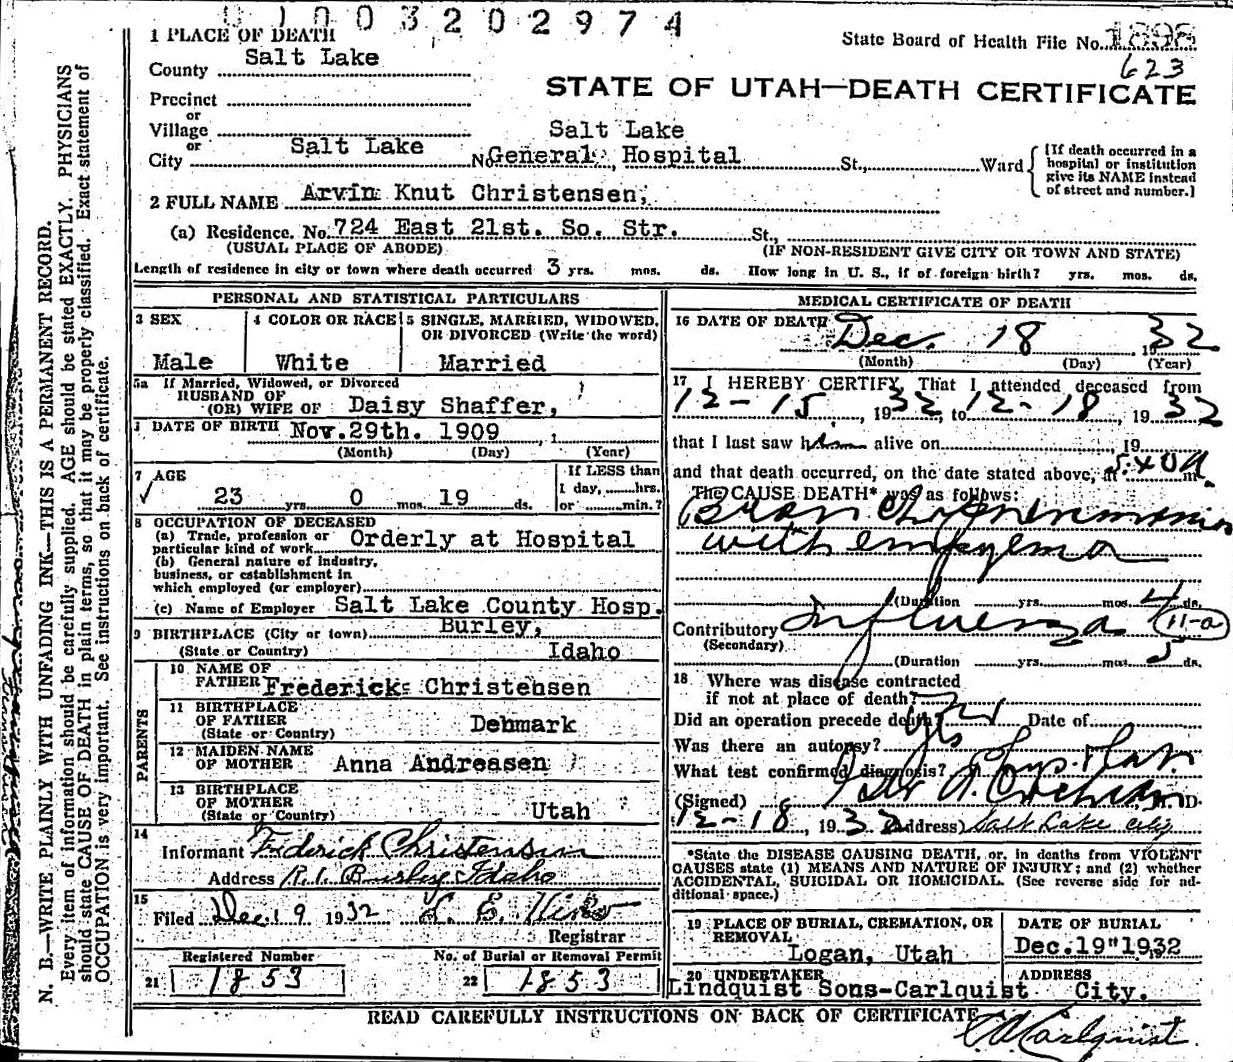 003202974
1 PLACE OF DEATH
State Board of Health File No. 1898
623
County Salt Lake
STATE OF UTAH—DEATH CERTIFICATE
Precinct
or
Village
Salt Lake
or
City Salt Lake No. General Hospital St., Ward
[If death occurred in a
hospital or institution
give its NAME instead
of street and number.]
2 FULL NAME Arvin Knut Christensen,
(a) Residence. No. 724 East 21st. So. Str. St.,
(USUAL PLACE OF ABODE) (IF NON-RESIDENT GIVE CITY OR TOWN AND STATE)
Length of residence in city or town where death occurred 3 yrs. mos. ds. How long in U. S., if of foreign birth? yrs. mos. ds.
PERSONAL AND STATISTICAL PARTICULARS
3 SEX
Male
4 COLOR OR RACE
White
5 SINGLE, MARRIED, WIDOWED,
OR DIVORCED (Write the word)
Married
5a If Married, Widowed, or Divorced
HUSBAND OF
(OR) WIFE OF Daisy Shaffer,
DATE OF BIRTH Nov. 29th. 1909 , 1
(Month) (Day) (Year)
7 AGE
23 yrs. 0 mos. 19 ds.
If LESS than
1 day, hrs.
or min.?
8 OCCUPATION OF DECEASED
(a) Trade, profession or
particular kind of work Orderly at Hospital
(b) General nature of industry,
business, or establishment in
which employed (or employer)
(c) Name of Employer Salt Lake County Hosp.
9 BIRTHPLACE (City or town) Burley,
(State or Country) Idaho
PARENTS
10 NAME OF
FATHER Frederick Christensen
11 BIRTHPLACE
OF FATHER
(State or Country) Denmark
12 MAIDEN NAME
OF MOTHER Anna Andreasen
13 BIRTHPLACE
OF MOTHER
(State or Country) Utah
14
Informant Frederick Christensen
Address R.1. Burley Idaho
15
Filed Dec. 19 1932
Registrar
Registered Number
21 1853
No. of Burial or Removal Permit
22 1853
MEDICAL CERTIFICATE OF DEATH
16 DATE OF DEATH Dec. 18 1932
(Month) (Day) (Year)
17 I HEREBY CERTIFY, That I attended deceased from
12-15, 1932, to 12-18, 1932
that I last saw him alive on , 19
and that death occurred, on the date stated above, at 5:40 A m.
The CAUSE DEATH* was as follows:
Bronchopneumonia
with empyema
(Duration yrs. mos. 4 ds.
Contributory Influenza 11-a
(Secondary)
(Duration yrs. mos. 5 ds.
18 Where was disease contracted
if not at place of death?
Did an operation precede death? Date of
Was there an autopsy? yes
What test confirmed diagnosis?
(Signed) M. D.
12-18, 1932 (Address) Salt Lake City
*State the DISEASE CAUSING DEATH, or, in deaths from VIOLENT
CAUSES state (1) MEANS AND NATURE OF INJURY; and (2) whether
ACCIDENTAL, SUICIDAL OR HOMICIDAL. (See reverse side for ad-
ditional space.)
19 PLACE OF BURIAL, CREMATION, OR
REMOVAL
Logan, Utah
DATE OF BURIAL
Dec. 19" 1932
20 UNDERTAKER
Lindquist Sons-Carlquist
ADDRESS
City.
READ CAREFULLY INSTRUCTIONS ON BACK OF CERTIFICATE
Carlquist
N. B.—WRITE PLAINLY WITH UNFADING INK—THIS IS A PERMANENT RECORD.
Every item of information should be carefully supplied. AGE should be stated EXACTLY. PHYSICIANS
should state CAUSE OF DEATH in plain terms, so that it may be properly classified. Exact statement of
OCCUPATION is very important. See instructions on back of certificate.